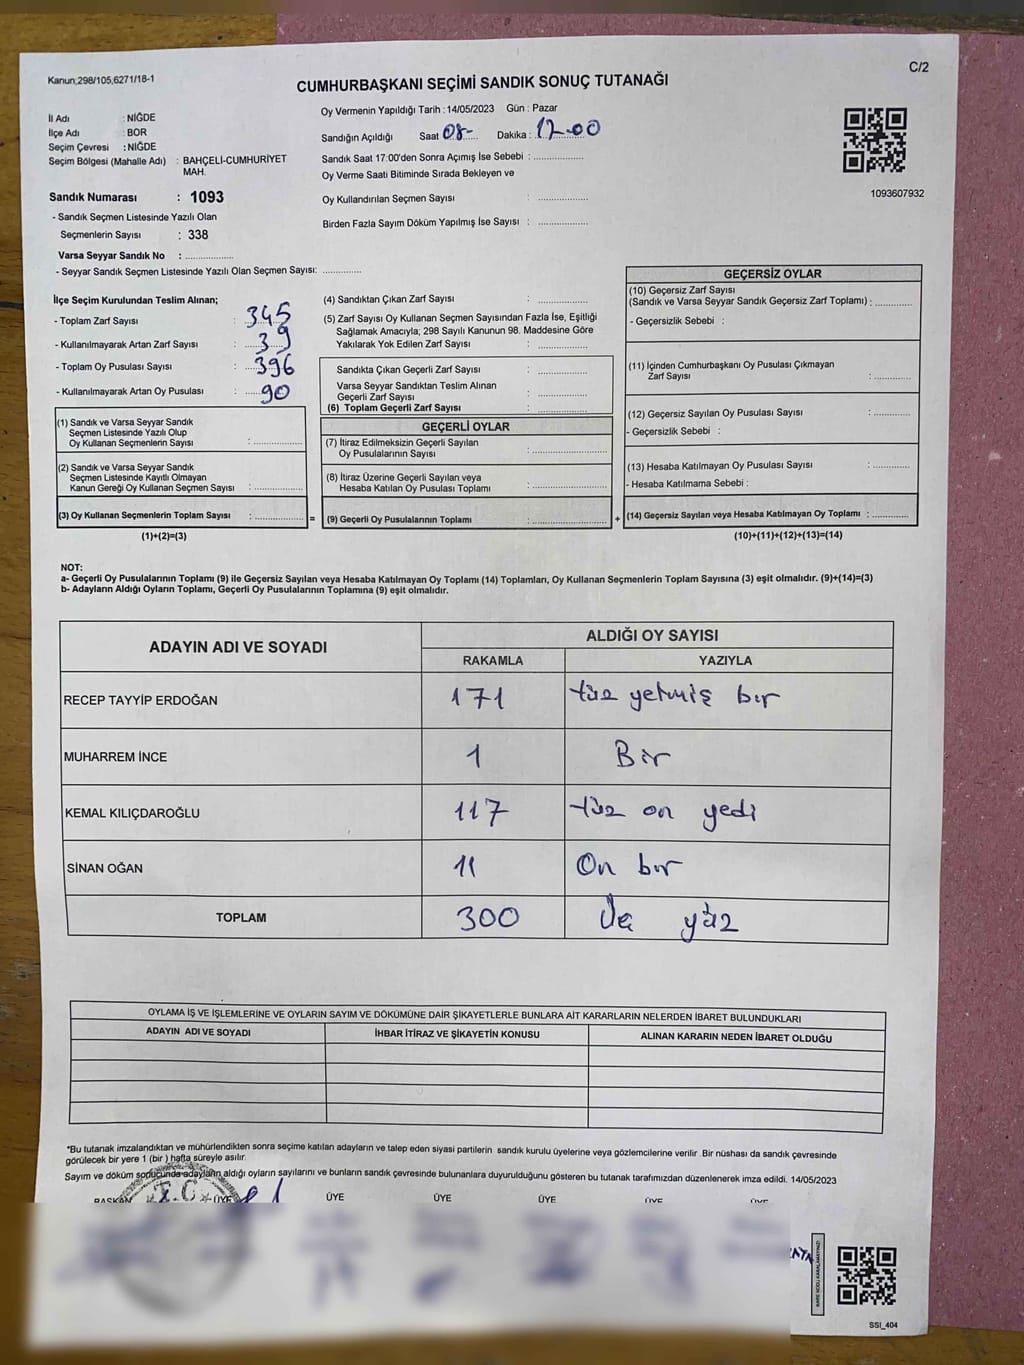 Kanun;298/105,6271/18-1
C/2
CUMHURBAŞKANI SEÇİMİ SANDIK SONUÇ TUTANAĞI
İl Adı : NİĞDE
İlçe Adı : BOR
Seçim Çevresi : NİĞDE
Seçim Bölgesi (Mahalle Adı) : BAHÇELİ-CUMHURİYET
MAH.
Sandık Numarası : 1093
- Sandık Seçmen Listesinde Yazılı Olan
Seçmenlerin Sayısı : 338
Varsa Seyyar Sandık No : ................
- Seyyar Sandık Listesinde Yazılı Olan Seçmen Sayısı: .............
Oy Vermenin Yapıldığı Tarih : 14/05/2023 Gün : Pazar
Sandığın Açıldığı Saat 08- Dakika : 17.00
Sandık Saat 17:00'den Sonra Açımış İse Sebebi : ................
Oy Verme Saati Bitiminde Sırada Bekleyen ve
Oy Kullandırılan Seçmen Sayısı : ................
Birden Fazla Sayım Döküm Yapılmış İse Sayısı : ................
1093607932
İlçe Seçim Kurulundan Teslim Alınan;
- Toplam Zarf Sayısı : 345
- Kullanılmayarak Artan Zarf Sayısı : 39
- Toplam Oy Pusulası Sayısı : 396
- Kullanılmayarak Artan Oy Pusulası : 90
(1) Sandık ve Varsa Seyyar Sandık
Seçmen Listesinde Yazılı Olup
Oy Kullanan Seçmenlerin Sayısı : ................
(2) Sandık ve Varsa Seyyar Sandık
Seçmen Listesinde Kayıtlı Olmayan
Kanun Gereği Oy Kullanan Seçmen Sayısı : ................
(3) Oy Kullanan Seçmenlerin Toplam Sayısı : ................
(1)+(2)=(3)
(4) Sandıktan Çıkan Zarf Sayısı : ................
(5) Zarf Sayısı Oy Kullanan Seçmen Sayısından Fazla İse, Eşitliği
Sağlamak Amacıyla; 298 Sayılı Kanunun 98. Maddesine Göre
Yakılarak Yok Edilen Zarf Sayısı : ................
Sandıkta Çıkan Geçerli Zarf Sayısı : ................
Varsa Seyyar Sandıktan Teslim Alınan
Geçerli Zarf Sayısı : ................
(6) Toplam Geçerli Zarf Sayısı : ................
GEÇERLİ OYLAR
(7) İtiraz Edilmeksizin Geçerli Sayılan
Oy Pusulalarının Sayısı : ................
(8) İtiraz Üzerine Geçerli Sayılan veya
Hesaba Katılan Oy Pusulası Toplamı : ................
= (9) Geçerli Oy Pusulalarının Toplamı : ................
GEÇERSİZ OYLAR
(10) Geçersiz Zarf Sayısı
(Sandık ve Varsa Seyyar Sandık Geçersiz Zarf Toplamı) : ............
- Geçersizlik Sebebi :
(11) İçinden Cumhurbaşkanı Oy Pusulası Çıkmayan
Zarf Sayısı : ............
(12) Geçersiz Sayılan Oy Pusulası Sayısı : ............
- Geçersizlik Sebebi :
(13) Hesaba Katılmayan Oy Pusulası Sayısı : ............
- Hesaba Katılmama Sebebi :
+ (14) Geçersiz Sayılan veya Hesaba Katılmayan Oy Toplamı : ............
(10)+(11)+(12)+(13)=(14)
NOT:
a- Geçerli Oy Pusulalarının Toplamı (9) ile Geçersiz Sayılan veya Hesaba Katılmayan Oy Toplamı (14) Toplamları, Oy Kullanan Seçmenlerin Toplam Sayısına (3) eşit olmalıdır. (9)+(14)=(3)
b- Adayların Aldığı Oyların Toplamı, Geçerli Oy Pusulalarının Toplamına (9) eşit olmalıdır.
ADAYIN ADI VE SOYADI ALDIĞI OY SAYISI
RAKAMLA YAZIYLA
RECEP TAYYİP ERDOĞAN 171 Yüz yetmiş bır
MUHARREM İNCE 1 Bir
KEMAL KILIÇDAROĞLU 117 Yüz on yedi
SİNAN OĞAN 11 On bır
TOPLAM 300 Üç yüz
OYLAMA İŞ VE İŞLEMLERİNE VE OYLARIN SAYIM VE DÖKÜMÜNE DAİR ŞİKAYETLERLE BUNLARA AİT KARARLARIN NELERDEN İBARET BULUNDUKLARI
ADAYIN ADI VE SOYADI İHBAR İTİRAZ VE ŞİKAYETİN KONUSU ALINAN KARARIN NEDEN İBARET OLDUĞU
*Bu tutanak imzalandıktan ve mühürlendikten sonra seçime katılan adayların ve talep eden siyasi partilerin sandık kurulu üyelerine veya gözlemcilerine verilir .Bir nüshası da sandık çevresinde
görülecek bir yere 1 (bir ) hafta süreyle asılır.
Sayım ve döküm sonucunda adayların aldığı oyların sayılarını ve bunların sandık çevresinde bulunanlara duyurulduğunu gösteren bu tutanak tarafımızdan düzenlenerek imza edildi. 14/05/2023
BAŞKAN T.C ÜYE ÜYE ÜYE ÜYE ÜYE ÜYE
SSI_404